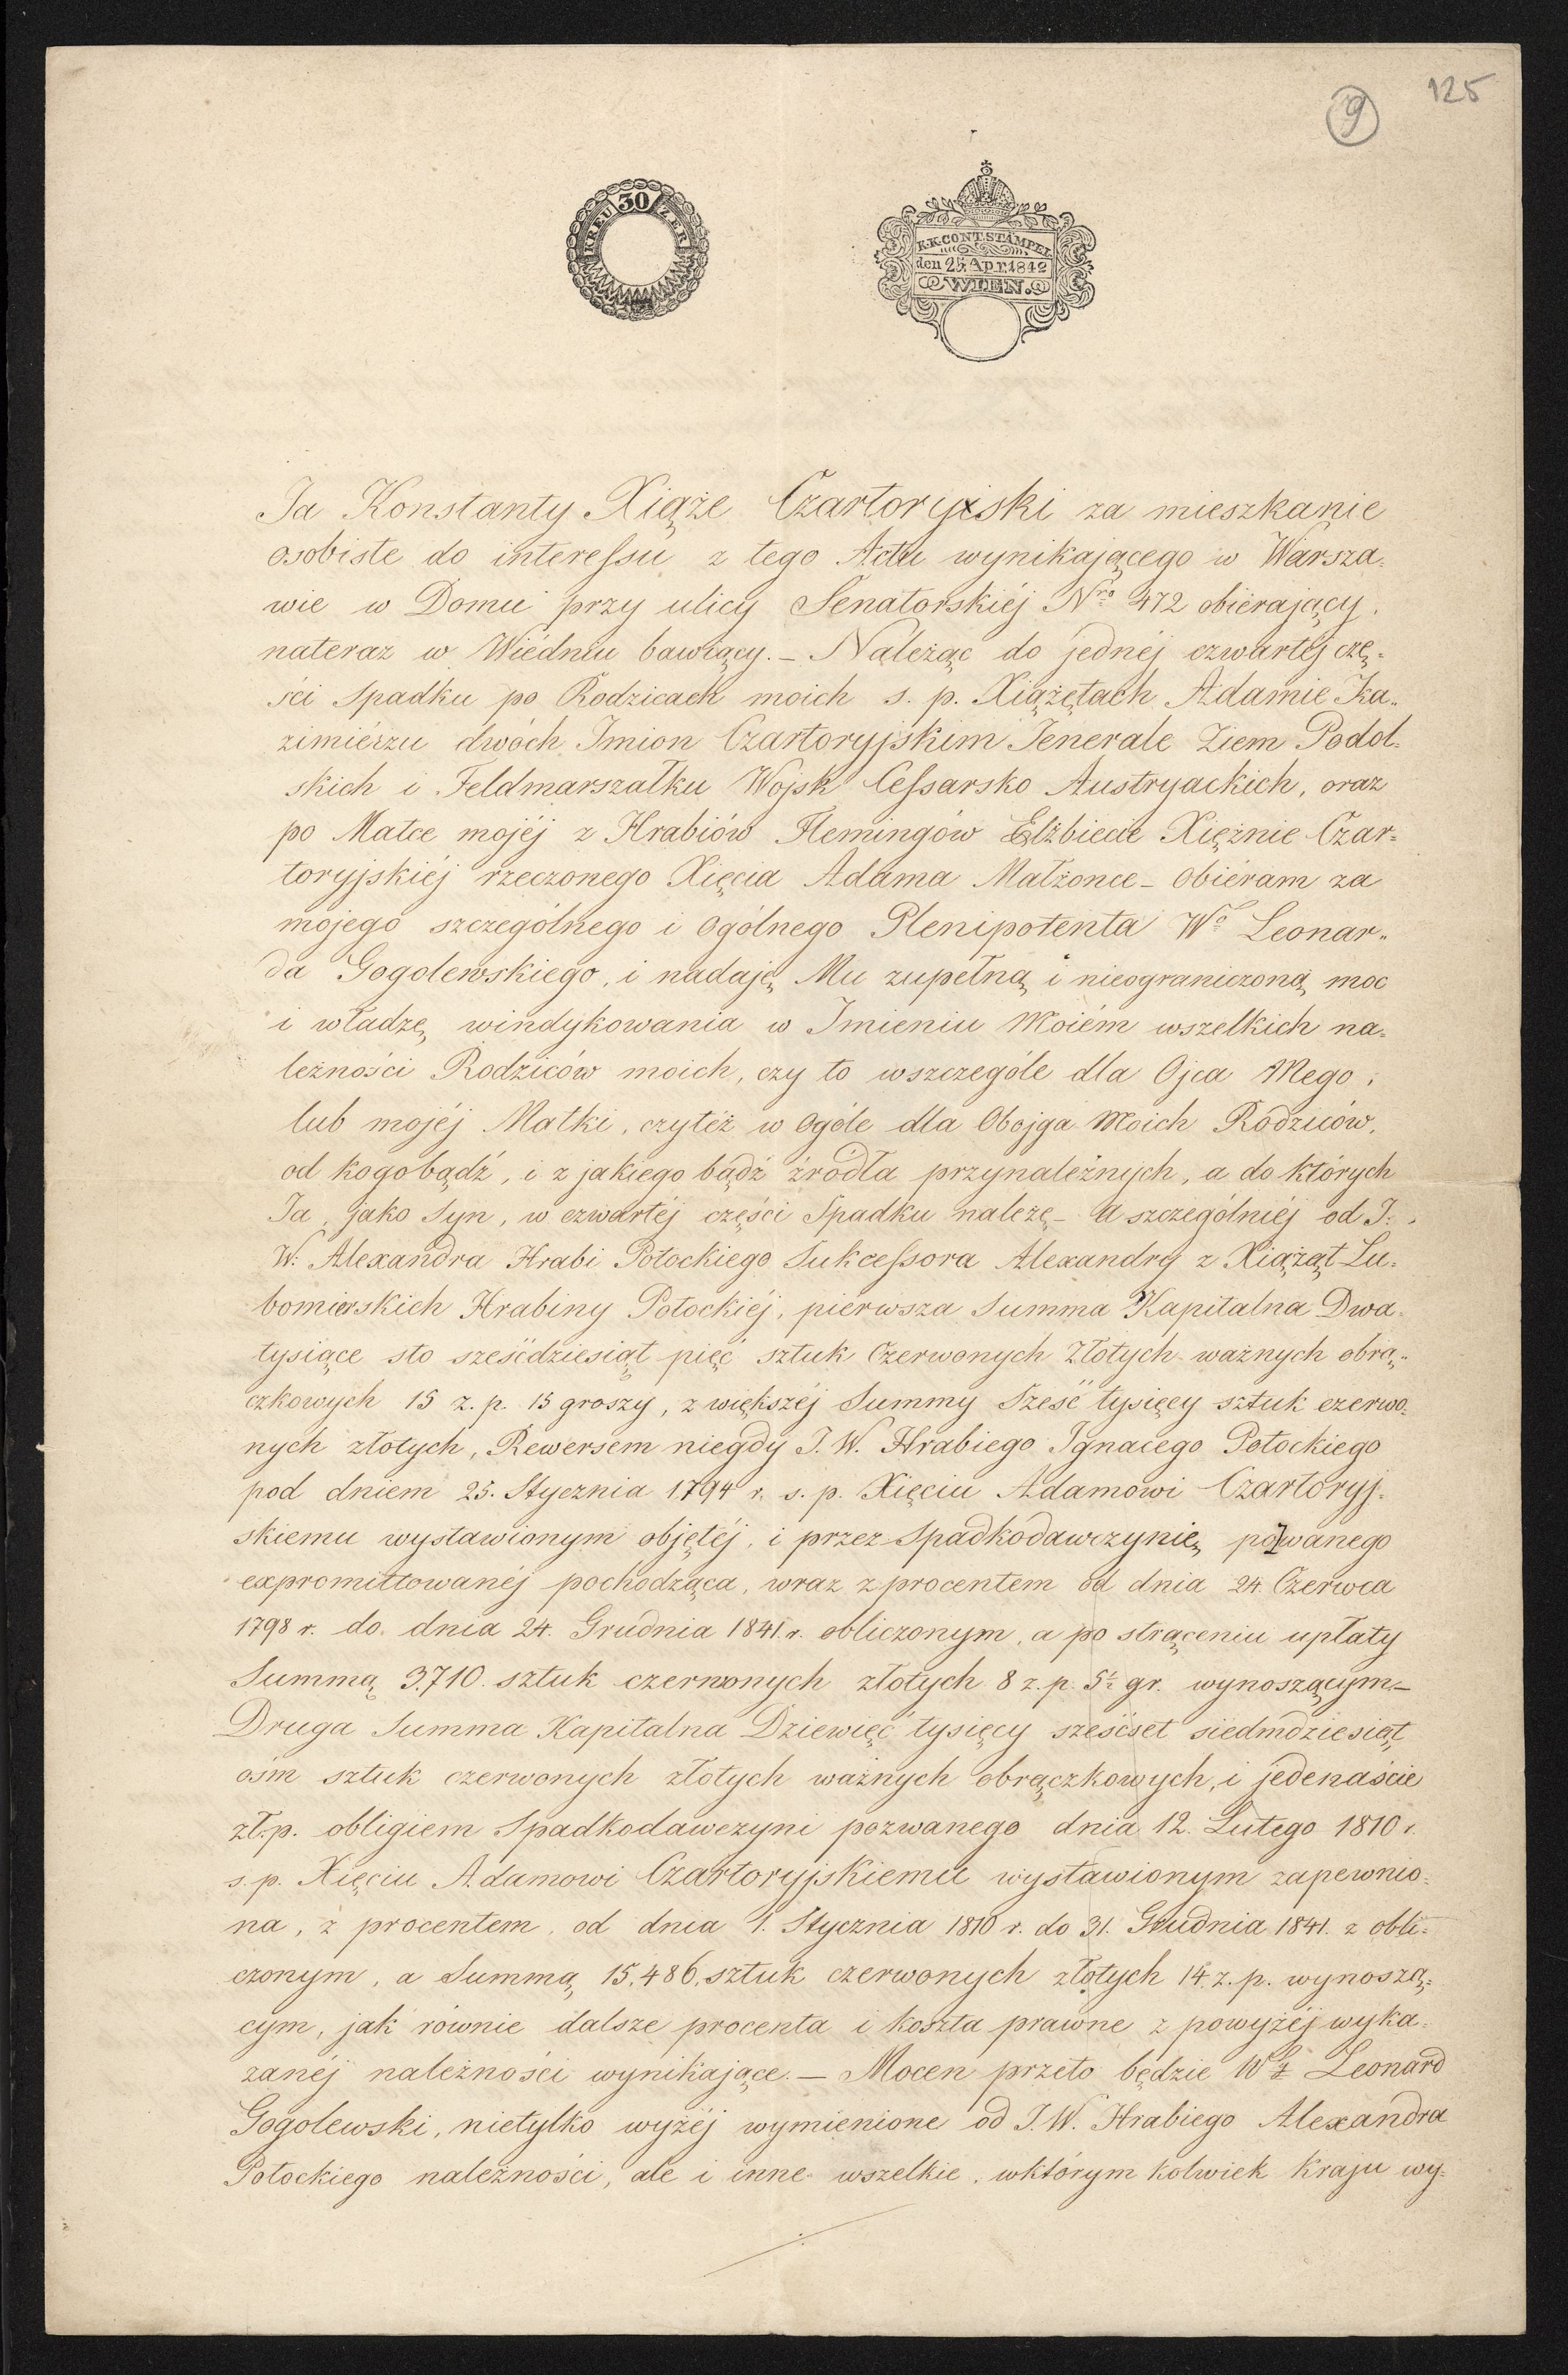 125
9
30
KREUZER
K.K.CONT.STÄMPEL
den 25. Apr. 1842
WIEN.
Ja Konstanty Xiąże Czartoryiski za mieszkanie
osobiste do interessu z tego Actu wynikającego w Warsza=
wie w Domu przy ulicy Senatorskiéj Nro 472 obierający,
nateraz w Wiédniu bawiący. – Należąc do jednéj czwartéj czę=
ści Spadku po Rodzicach moich s. p. Xiążętach Adamie Ka=
zimiérzu dwóch Imion Czartoryjskim Jenerale Ziem Podol=
skich i Feldmarszałku Wojsk Cessarsko Austryackich, oraz
po Matce mojéj z Hrabiów Flemingów Elżbiecie Xiężnie Czar=
toryjskiéj rzeczonego Xięcia Adama Małżonce – Obiéram za
mojego szczególnego i Ogólnego Plenipotenta Wo Leonar=
da Gogolewskiego, i nadaję Mu zupełną i nieograniczoną moc
i władzę windykowania w Imieniu Moiém wszelkich na=
leżności Rodziców moich, czy to wszczególe dla Ojca Mego,
lub mojéj Matki, czytéż w Ogóle dla Obojga Moich Rodziców,
od kogobądź, i z jakiego bądź źródła przynależnych, a do których
Ja, jako Syn, w czwartéj części Spadku należę – A szczególniéj od J:
W: Alexandra Hrabi Potockiego Sukcessora Alexandry z Xiążąt Lu=
bomirskich Hrabiny Potockiéj, pierwsza Summa Kapitalna Dwa=
tysiące sto sześćdziesiąt pięć sztuk Czerwonych Złotych ważnych obrą=
czkowych 15 z. p. 15 groszy, z większéj Summy Sześć tysięcy sztuk czerwo=
nych złotych, Rewersem niegdy J. W. Hrabiego Ignacego Potockiego
pod dniem 25. Stycznia 1794 r. s. p. Xięciu Adamowi Czartoryj=
skiemu wystawionym objętéj, i przez Spadkodawczynię pozwanego
expromittowanéj pochodząca, wraz z procentem od dnia 24. Czerwca
1798 r. do dnia 24. Grudnia 1841. r. obliczonym, a po strąceniu upłaty
Summą 3,710. sztuk czerwonych złotych 8 z. p. 5½ gr. wynoszącym –
Druga Summa Kapitalna Dziewięć tysięcy sześćset siedmdziesiąt
ośm sztuk czerwonych złotych ważnych obrączkowych, i jedenaście
zł.p. obligiem Spadkodawczyni pozwanego dnia 12. Lutego 1810 r.
s. p. Xięciu Adamowi Czartoryjskiemu wystawionym zapewnio=
na, z procentem, od dnia 1. Stycznia 1810 r. do 31. Grudnia 1841. z obli=
czonym, a Summą 15,486, sztuk czerwonych złotych 14. z. p. wynoszą=
cym, jak równie dalsze procenta i koszta prawne z powyżéj wyka=
zanéj należności wynikające. – Mocen przeto będzie Wż Leonard
Gogolewski, nietylko wyżéj wymienione od J. W. Hrabiego Alexandra
Potockiego należności, ale i inne wszelkie, wktórym kolwiek Kraju wy=